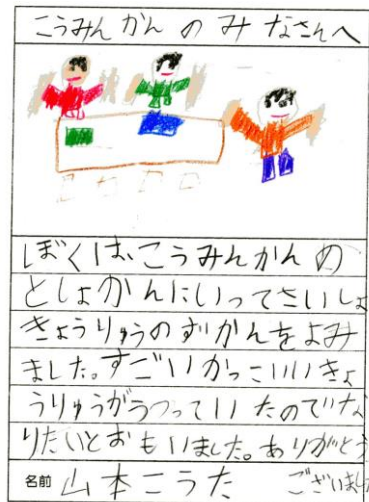 こうみんかんのみなさんへ
ぼくは、こうみんかんの
としょかんにいってさいしょ
きょうりゅうのずかんをよみ
ました。すごいかっこいいきょ
うりゅうがうつっていたのでな
りたいとおもいました。ありがとう
ございました
名前 山本こうた